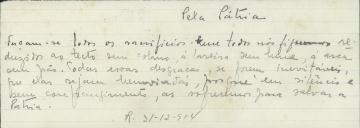 Pela Pátria
Façam-se todos os sacrifícios. Que todos nós fiquemos re-
duzidos ao tecto sem colmo, á lareira sem lume, á arca
sem pão. Todas essas desgraças, se forem inevitáveis,
por elas sejam em silêncio e
sem constrangimento, as soframos para salvar a
Pátria.
R. 31-12-914